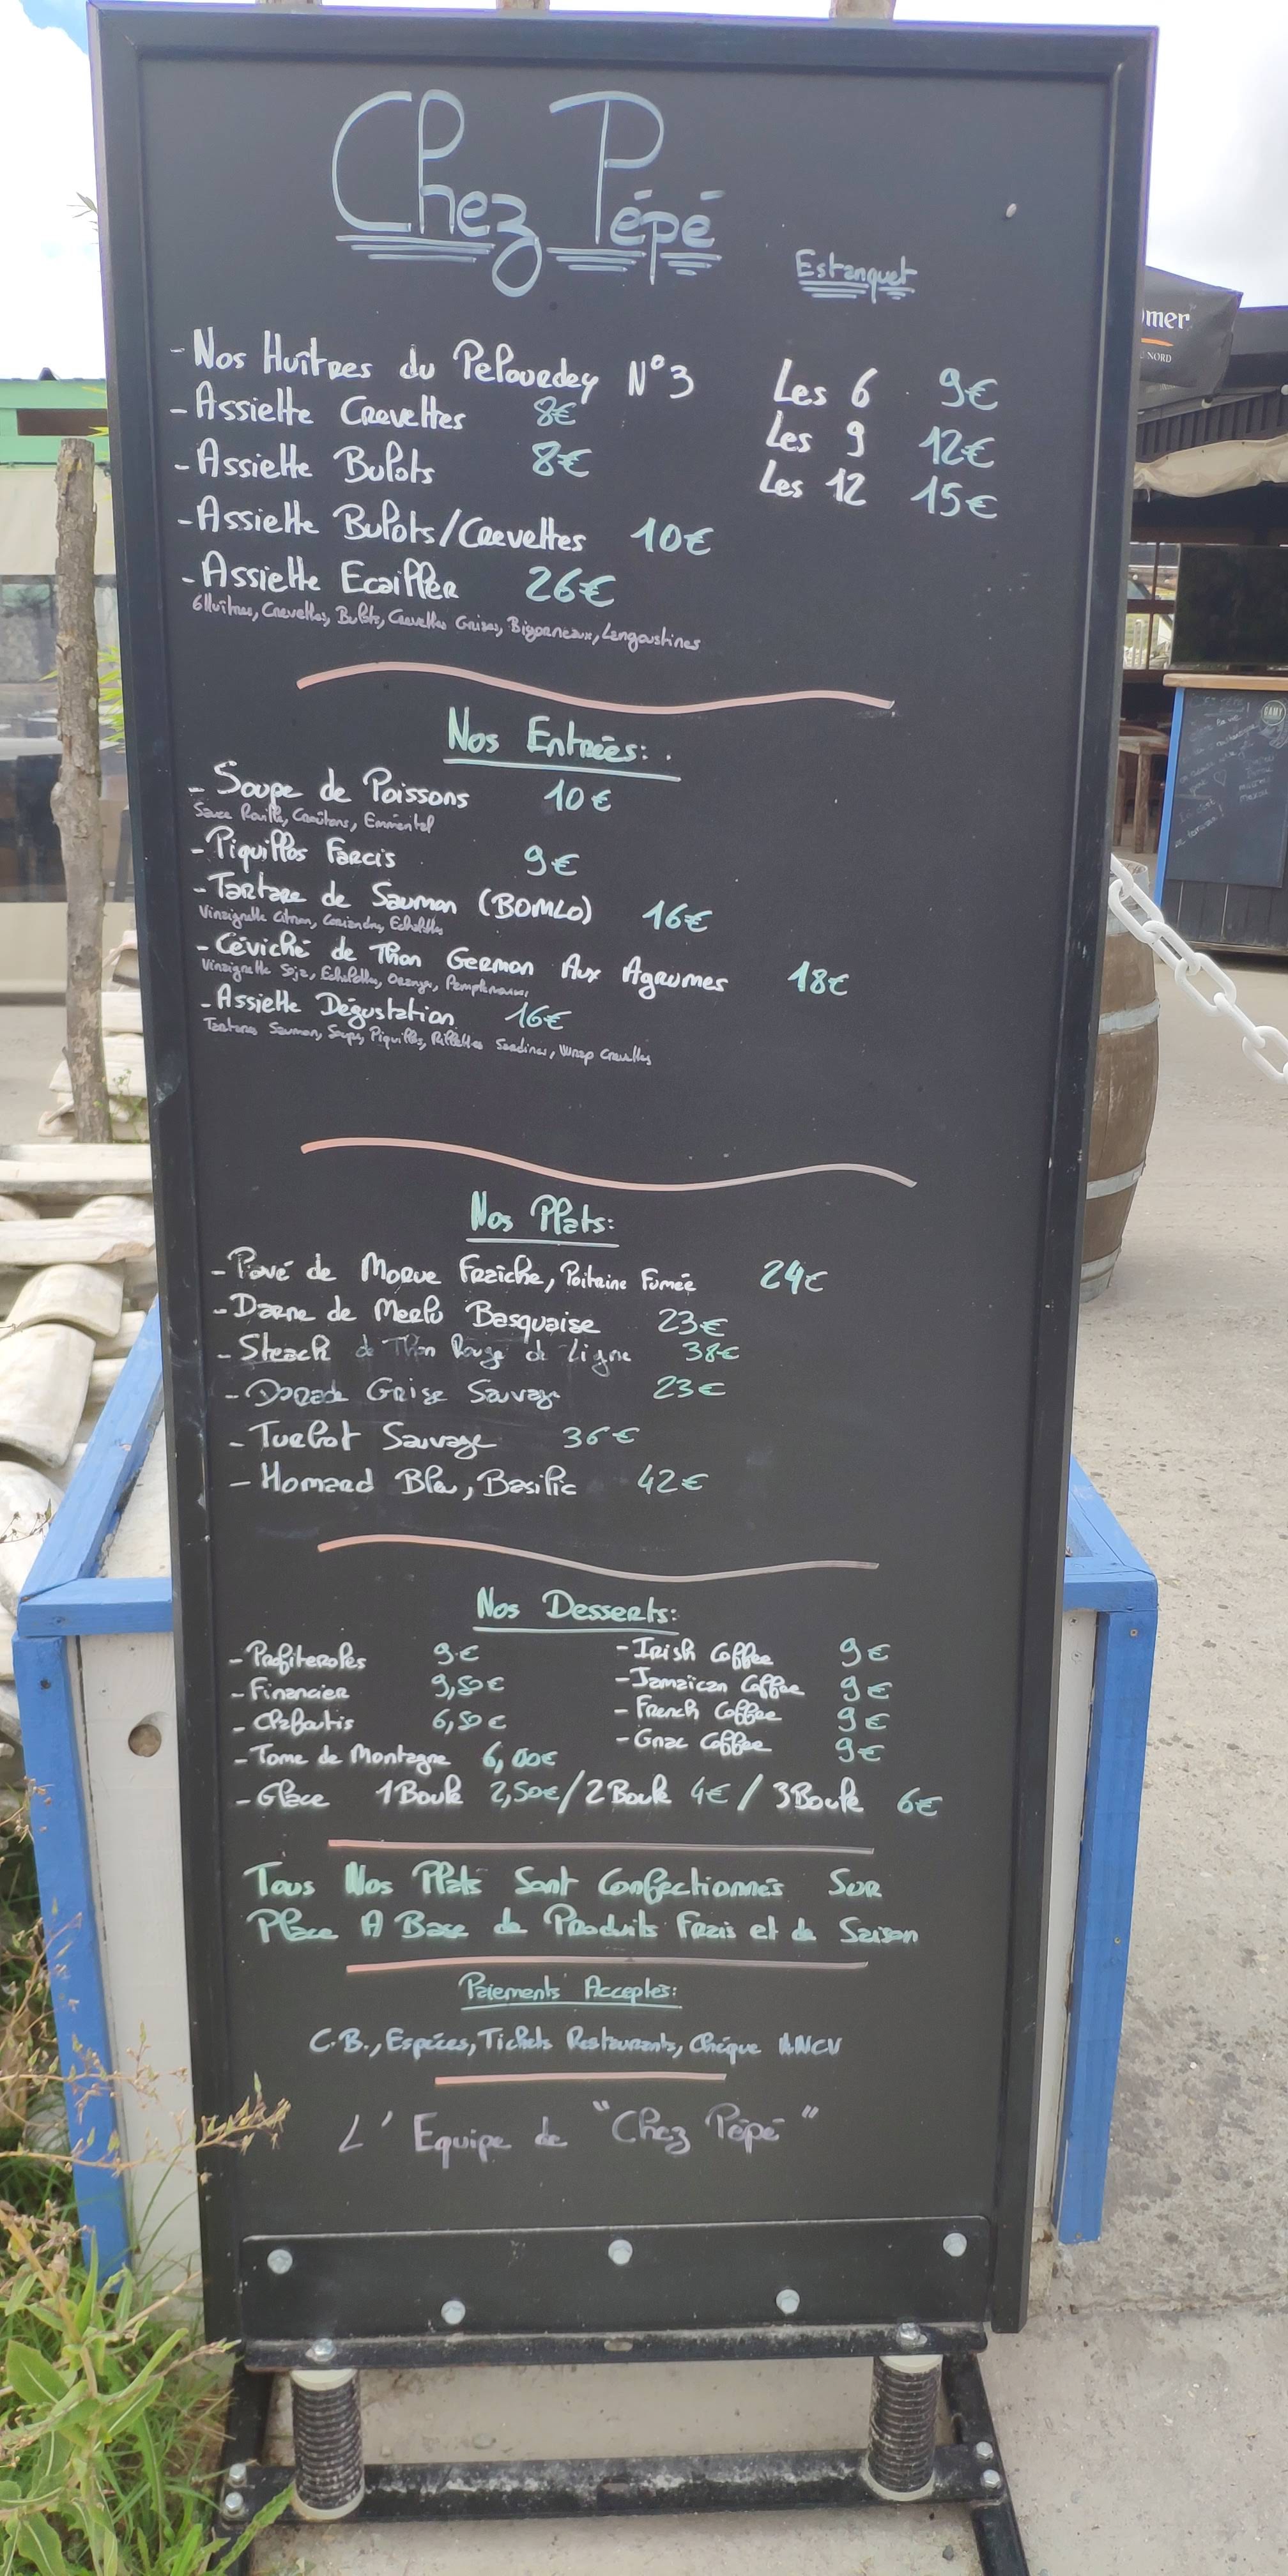 Chez Pépé
Estanquet
- Nos Huîtres du Pelourdey N°3 Les 6 9€
- Assiette Crevettes 8€ Les 9 12€
- Assiette Bulots 8€ Les 12 15€
- Assiette Bulots/Crevettes 10€
- Assiette Ecailler 26€
6 Huîtres, Crevettes, Bulots, Crevettes Grises, Bigorneaux, Langoustines
Nos Entrées:
- Soupe de Poissons 10€
Sauce Rouille, Croûtons, Emmental
- Piquillos Farcis 9€
- Tartare de Saumon (BOMLO) 16€
Vinaigrette Citron, Coriandre, Echalottes
- Céviché de Thon Germon Aux Agrumes 18€
Vinaigrette Soja, Echalottes, Orange, Pamplemousse,
- Assiette Dégustation 16€
Tartare Saumon, Soupe, Piquillos, Rillettes Sardines, Wrap Crevettes
Nos Plats:
- Pavé de Morue Fraîche, Poitrine Fumée 24€
- Darne de Merlu Basquaise 23€
- Steack de Thon Rouge de Ligne 38€
- Dorade Grise Sauvage 23€
- Turbot Sauvage 36€
- Homard Bleu, Basilic 42€
Nos Desserts:
- Profiteroles 9€ - Irish Coffee 9€
- Financier 9,50€ - Jamaican Coffee 9€
- Clafoutis 6,50€ - French Coffee 9€
- Tome de Montagne 6,00€ - Gnac Coffee 9€
- Glace 1 Boule 2,50€ / 2 Boule 4€ / 3 Boule 6€
Tous Nos Plats Sont Confectionnés Sur
Place A Base de Produits Frais et de Saison
Paiements Acceptés:
C.B., Espèces, Tickets Restaurants, Chéque ANCV
L' Equipe de "Chez Pépé"
omer
NORD
GAMY